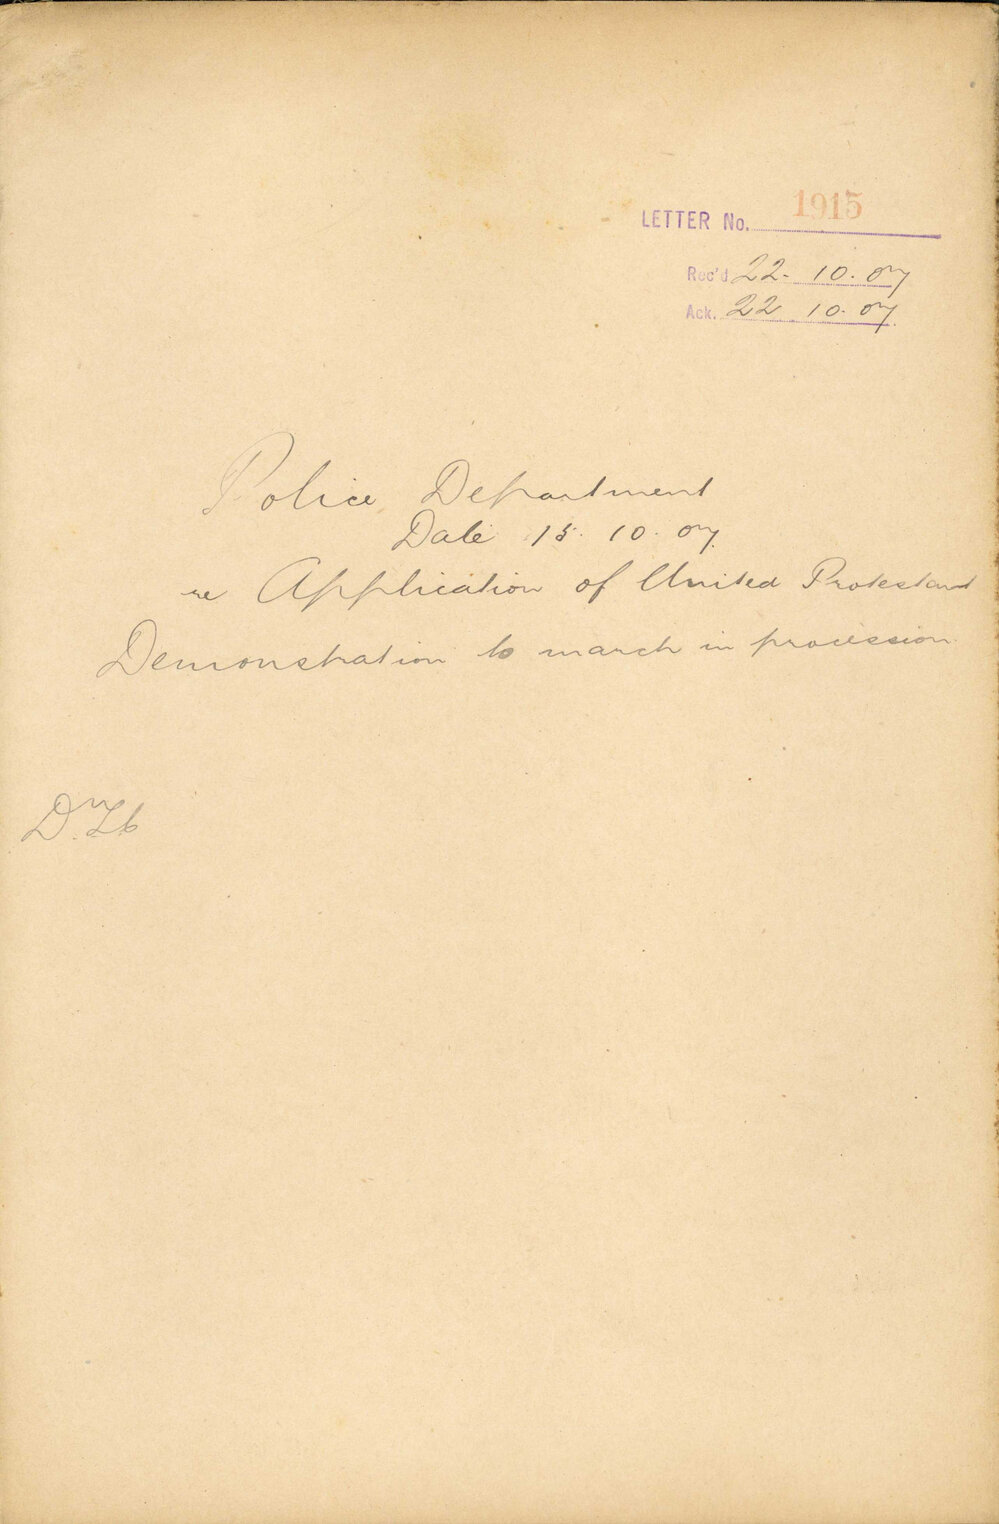 LETTER No. 1915
Rec'd 22. 10. 07
Ack. 22 10. 07
Police Department
Date 15. 10. 07.
re Application of United Protestant
Demonstration to march in procession